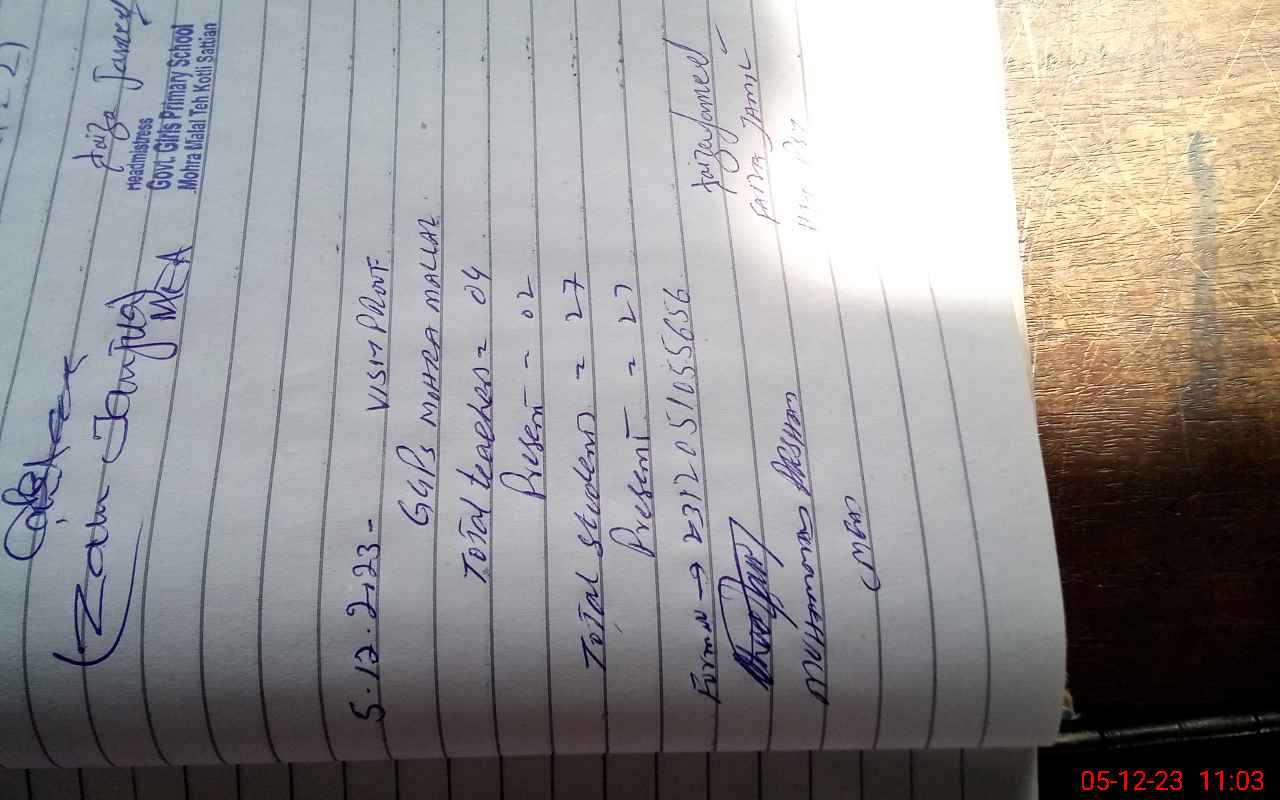 Zain Janjua
MEA
Faiza Jameel
Headmistress
Govt. Girls Primary School
Mohra Malal Teh Kotli Sattian
5.12.2023- VISIT PROOF
GGPS MOHRA MALLAL
Total teachers = 04
Present = 02
Total students = 27
Present = 27
Form N → 2312051055656
Faiza Jameel
MUHAMMAD ARSHAD FAIZA JAMIL
(MEA)
05-12-23 11:03